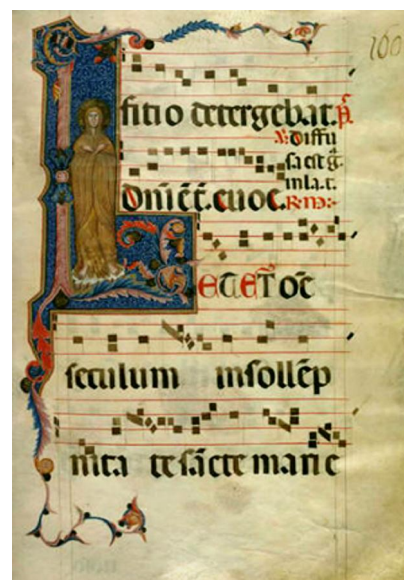 100
sitio detergebat. P̄.
V. Diffu
sa est ḡ.
in la. t.
Dnı̄ ēt̄. euoc. R. ma.
LETET̄ oc̄
seculum in sollēp
nita te sācte marie